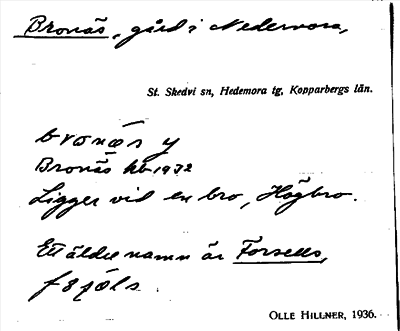 Bronäs, gård i Nedervora,
St. Skedvi sn, Hedemora tg, Kopparbergs län.
bronæs y
Bronäs kb 1932
Ligger vid en bro, Högbro.
Ett äldre namn är Forsells,
OLLE HILLNER, 1936.